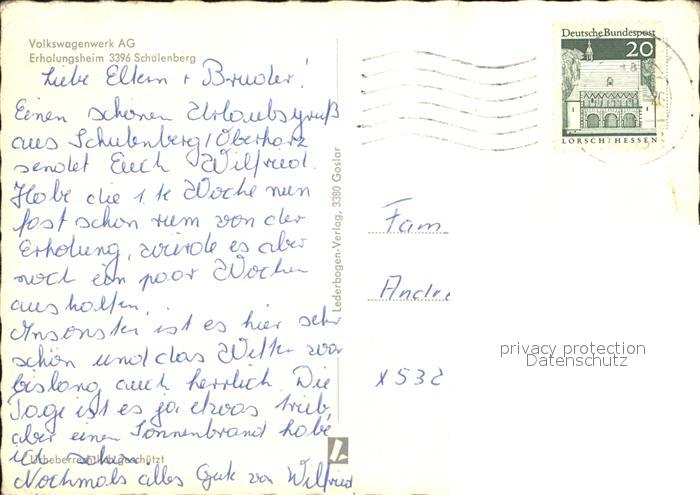 Volkswagenwerk AG
Erholungsheim 3396 Schülenberg
Liebe Eltern + Bruder!
Einen schönen Urlaubsgruß
aus Schulenberg/Oberharz
sendet Euch Wilfried.
Habe die 1te Woche nun
fast schon rum von der
Erholung, würde es aber
noch ein paar Wochen
aushalten.
Ansonsten ist es hier sehr
schön und das Wetter war
bislang auch herrlich. Die
Tage ist es ja etwas trüb,
aber einen Sonnenbrand habe
ich schon.
Urheberrechtlich geschützt
Nochmals alles Gute von Wilfried
Lederbogen-Verlag, 3380 Goslar
Deutsche Bundespost
20
LORSCH/HESSEN
Fam.
Andre
x 532
privacy protection
Datenschutz